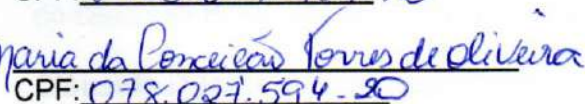 Maria da Conceição Torres de oliveira
CPF: 078.027.594-20